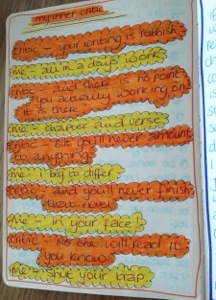 my inner critic
critic - your writing is rubbish
me - all in a days work
critic - and there is no point
you actually working on
it is there
me - chapter and verse
critic - But you'll never amount
to anything
me - I beg to differ
critic - and you'll never finish
that novel
me - in your face!
critic - No one will read it
you know
me - Shut your trap